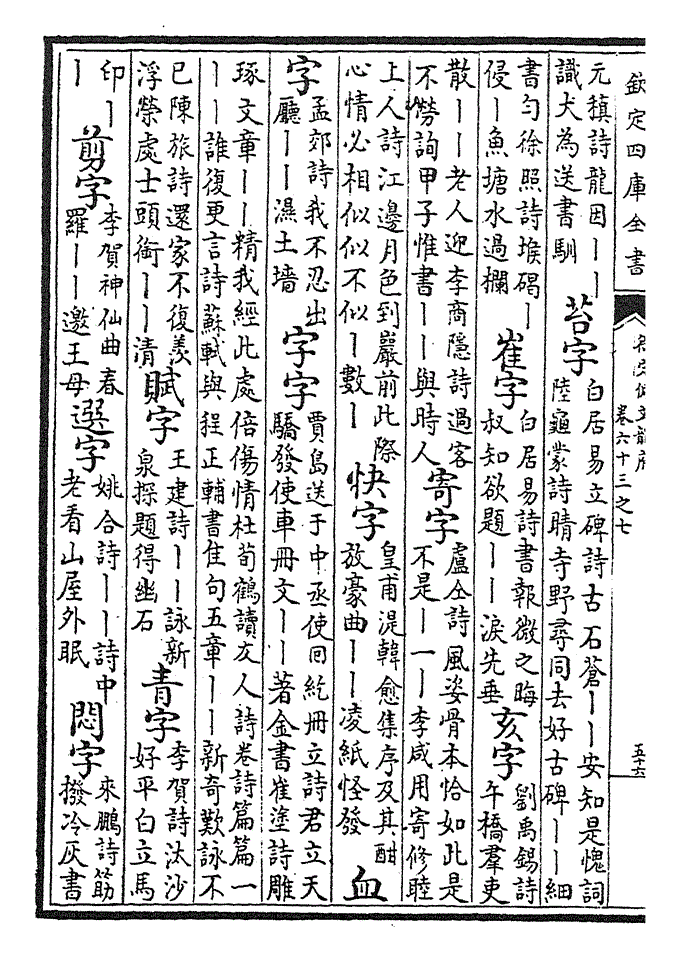 欽定四庫全書
御定佩文韻府
卷六十三之七
五十六
元稹詩龍因丨丨
識犬為送書馴
苔字
白居易立碑詩古石蒼丨丨安知是愧詞
陸龜蒙詩晴寺野尋同去好古碑丨丨細
書勻徐照詩堠碣丨
侵丨魚塘水過欄
崔字
白居易詩書報微之晦
叔知欲題丨丨淚先垂
亥字
劉禹錫詩
午橋羣吏
散丨丨老人迎李商隱詩過客
不勞詢甲子惟書丨丨與時人
寄字
盧仝詩風姿骨本恰如此是
不是丨一丨李咸用寄修睦
上人詩江邊月色到巖前此際
心情必相似似不似丨數丨
快字
皇甫湜韓愈集序及其酣
放豪曲丨丨凌紙怪發
血
字
孟郊詩我不忍出
廳丨丨濕土墻
字字
賈島送于中丞使回紇冊立詩君立天
驕發使車冊文丨丨著金書崔塗詩雕
琢文章丨丨精我經此處倍傷情杜荀鶴讀友人詩卷詩篇篇一
丨丨誰復更言詩蘇軾與程正輔書隹句五章丨丨新奇歎詠不
已陳旅詩還家不復羨
浮榮處士頭銜丨丨清
賦字
王建詩丨丨詠新
泉探題得幽石
青字
李賀詩汰沙
好平白立馬
印丨
丨
剪字
李賀神仙曲春
羅丨丨邀王母
選字
姚合詩丨丨詩中
老看山屋外眠
悶字
來鵬詩筯
撥冷灰書